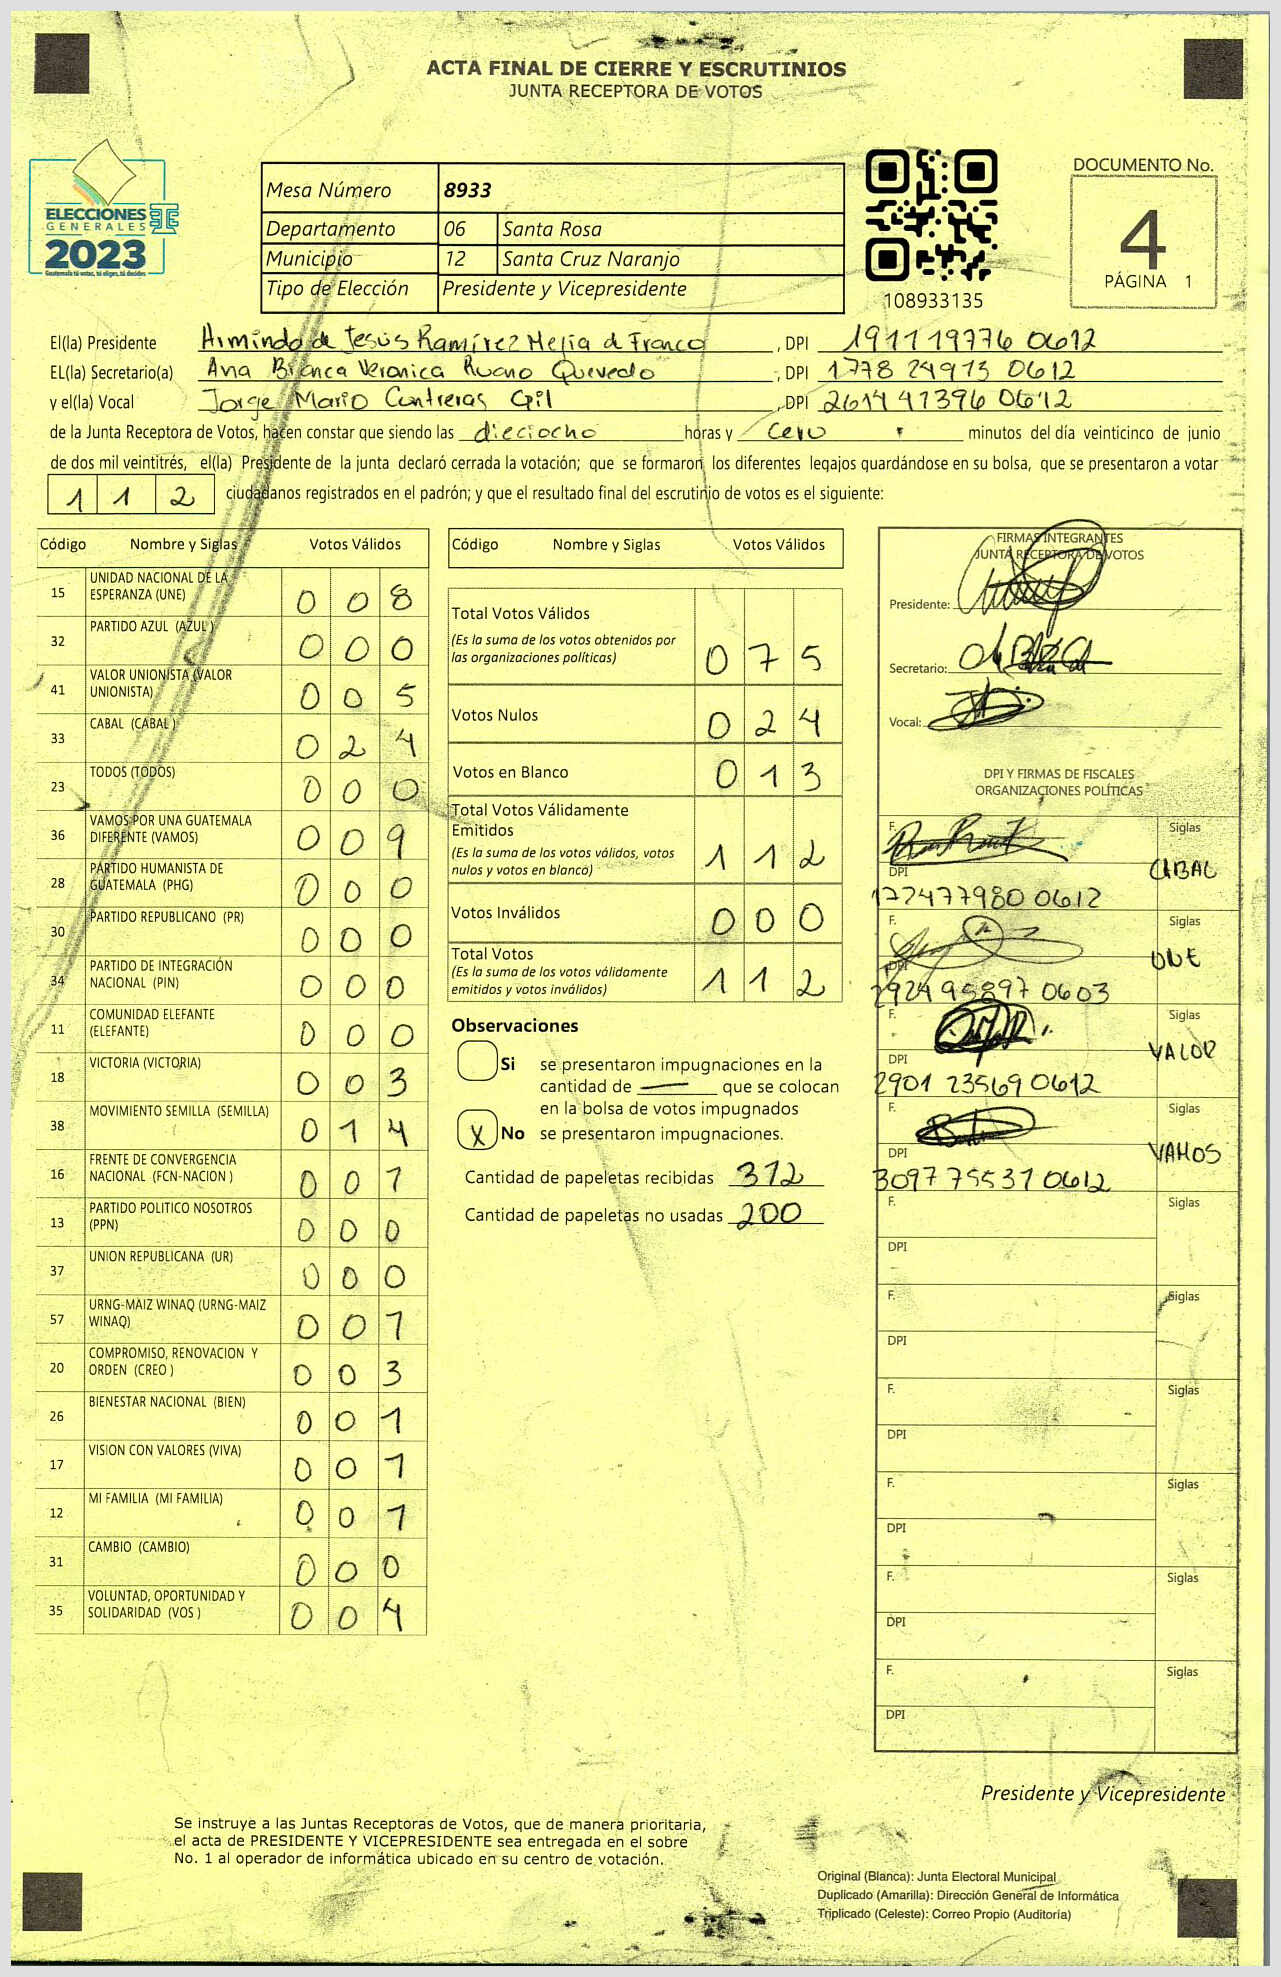 ACTA FINAL DE CIERRE Y ESCRUTINIOS
JUNTA RECEPTORA DE VOTOS
ELECCIONES
GENERALES
2023
Guatemala tú votas, tú eliges, tú decides
Mesa Número 8933
Departamento 06 Santa Rosa
Municipio 12 Santa Cruz Naranjo
Tipo de Elección Presidente y Vicepresidente
108933135
DOCUMENTO No.
4
PÁGINA 1
El(la) Presidente Armindo de Jesús Ramírez Mejia d Franco, DPI 191119776 0612
EL(la) Secretario(a) Ana Bianca Veronica Ruano Quevedo, DPI 1778 24913 0612
y el(la) Vocal Jorge Mario Contreras Gil, DPI 2614 41396 0612
de la Junta Receptora de Votos, hacen constar que siendo las dieciocho horas y cero minutos del día veinticinco de junio
de dos mil veintitrés, el(la) Presidente de la junta declaró cerrada la votación; que se formaron los diferentes legajos guardándose en su bolsa, que se presentaron a votar
1 1 2 ciudadanos registrados en el padrón; y que el resultado final del escrutinio de votos es el siguiente:
Código Nombre y Siglas Votos Válidos
15 UNIDAD NACIONAL DE LA ESPERANZA (UNE) 0 0 8
32 PARTIDO AZUL (AZUL) 0 0 0
41 VALOR UNIONISTA (VALOR UNIONISTA) 0 0 5
33 CABAL (CABAL) 0 2 4
23 TODOS (TODOS) 0 0 0
36 VAMOS POR UNA GUATEMALA DIFERENTE (VAMOS) 0 0 9
28 PARTIDO HUMANISTA DE GUATEMALA (PHG) 0 0 0
30 PARTIDO REPUBLICANO (PR) 0 0 0
34 PARTIDO DE INTEGRACIÓN NACIONAL (PIN) 0 0 0
11 COMUNIDAD ELEFANTE (ELEFANTE) 0 0 0
18 VICTORIA (VICTORIA) 0 0 3
38 MOVIMIENTO SEMILLA (SEMILLA) 0 1 4
16 FRENTE DE CONVERGENCIA NACIONAL (FCN-NACION) 0 0 1
13 PARTIDO POLITICO NOSOTROS (PPN) 0 0 0
37 UNION REPUBLICANA (UR) 0 0 0
57 URNG-MAIZ WINAQ (URNG-MAIZ WINAQ) 0 0 1
20 COMPROMISO, RENOVACION Y ORDEN (CREO) 0 0 3
26 BIENESTAR NACIONAL (BIEN) 0 0 1
17 VISION CON VALORES (VIVA) 0 0 1
12 MI FAMILIA (MI FAMILIA) 0 0 1
31 CAMBIO (CAMBIO) 0 0 0
35 VOLUNTAD, OPORTUNIDAD Y SOLIDARIDAD (VOS) 0 0 4
Código Nombre y Siglas Votos Válidos
Total Votos Válidos 0 7 5
(Es la suma de los votos obtenidos por
las organizaciones políticas)
Votos Nulos 0 2 4
Votos en Blanco 0 1 3
Total Votos Válidamente
Emitidos 1 1 2
(Es la suma de los votos válidos, votos
nulos y votos en blanco)
Votos Inválidos 0 0 0
Total Votos 1 1 2
(Es la suma de los votos válidamente
emitidos y votos inválidos)
Observaciones
Si se presentaron impugnaciones en la
cantidad de — que se colocan
en la bolsa de votos impugnados
X No se presentaron impugnaciones.
Cantidad de papeletas recibidas 312
Cantidad de papeletas no usadas 200
FIRMAS INTEGRANTES
JUNTA RECEPTORA DE VOTOS
Presidente:
Secretario:
Vocal:
DPI Y FIRMAS DE FISCALES
ORGANIZACIONES POLÍTICAS
F. Siglas CABAL
DPI 172477980 0612
F. Siglas UNE
DPI 292495897 0603
F. Siglas VALOR
DPI 2901 23569 0612
F. Siglas VAMOS
DPI 3097 75537 0612
F. Siglas
DPI
F. Siglas
DPI
F. Siglas
DPI
F. Siglas
DPI
F. Siglas
DPI
F. Siglas
DPI
Presidente y Vicepresidente
Se instruye a las Juntas Receptoras de Votos, que de manera prioritaria,
el acta de PRESIDENTE Y VICEPRESIDENTE sea entregada en el sobre
No. 1 al operador de informática ubicado en su centro de votación.
Original (Blanca): Junta Electoral Municipal
Duplicado (Amarilla): Dirección General de Informática
Triplicado (Celeste): Correo Propio (Auditoría)